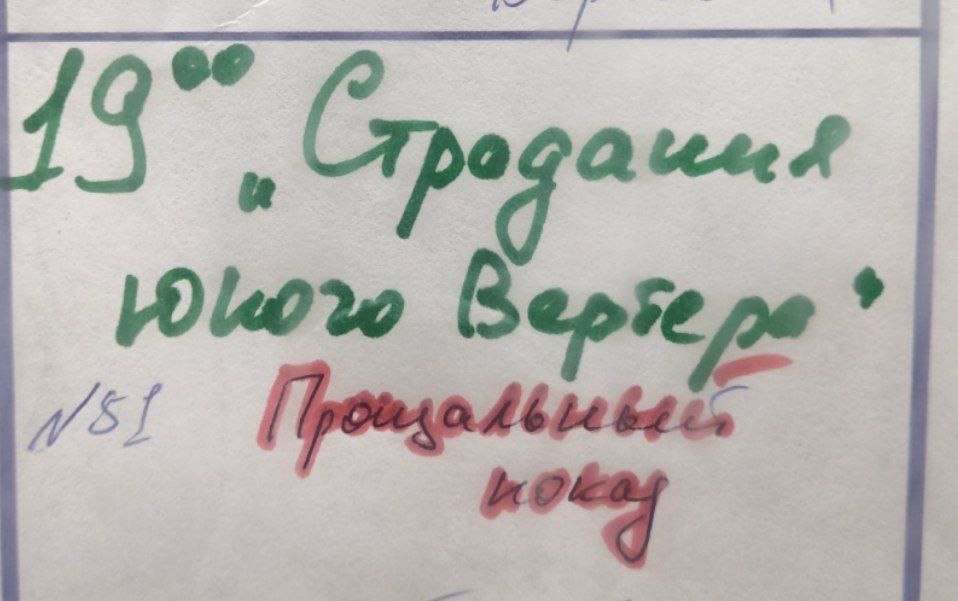 19⁰⁰ „Страдания
юного Вертера"
№51 Прощальный
показ